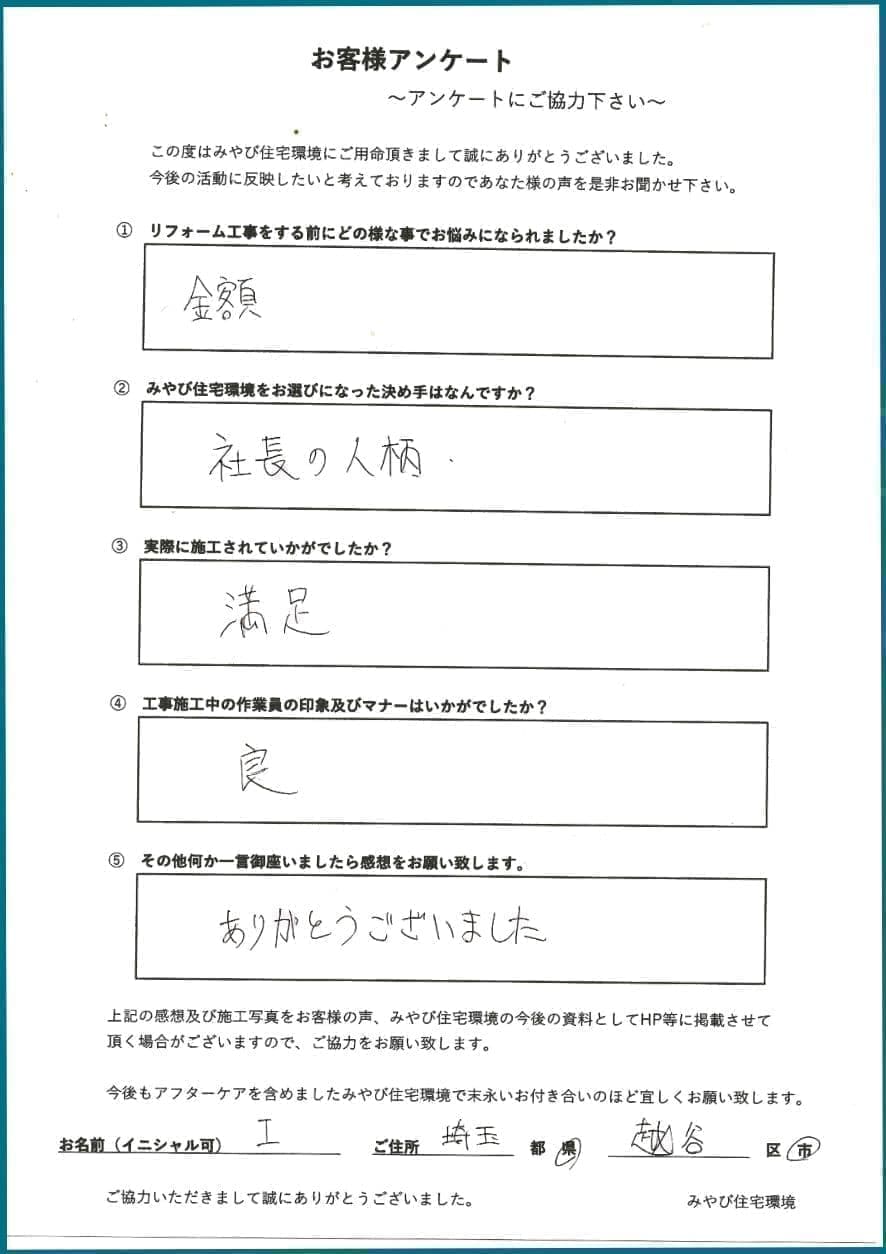 お客様アンケート
～アンケートにご協力下さい～
この度はみやび住宅環境にご用命頂きまして誠にありがとうございました。
今後の活動に反映したいと考えておりますのであなた様の声を是非お聞かせ下さい。
① リフォーム工事をする前にどの様な事でお悩みになられましたか？
金額
② みやび住宅環境をお選びになった決め手はなんですか？
社長の人柄.
③ 実際に施工されていかがでしたか？
満足
④ 工事施工中の作業員の印象及びマナーはいかがでしたか？
良
⑤ その他何か一言御座いましたら感想をお願い致します。
ありがとうございました
上記の感想及び施工写真をお客様の声、みやび住宅環境の今後の資料としてHP等に掲載させて
頂く場合がございますので、ご協力をお願い致します。
今後もアフターケアを含めましたみやび住宅環境で末永いお付き合いのほど宜しくお願い致します。
お名前（イニシャル可） I ご住所 埼玉 都 県 越谷 区 市
ご協力いただきまして誠にありがとうございました。 みやび住宅環境